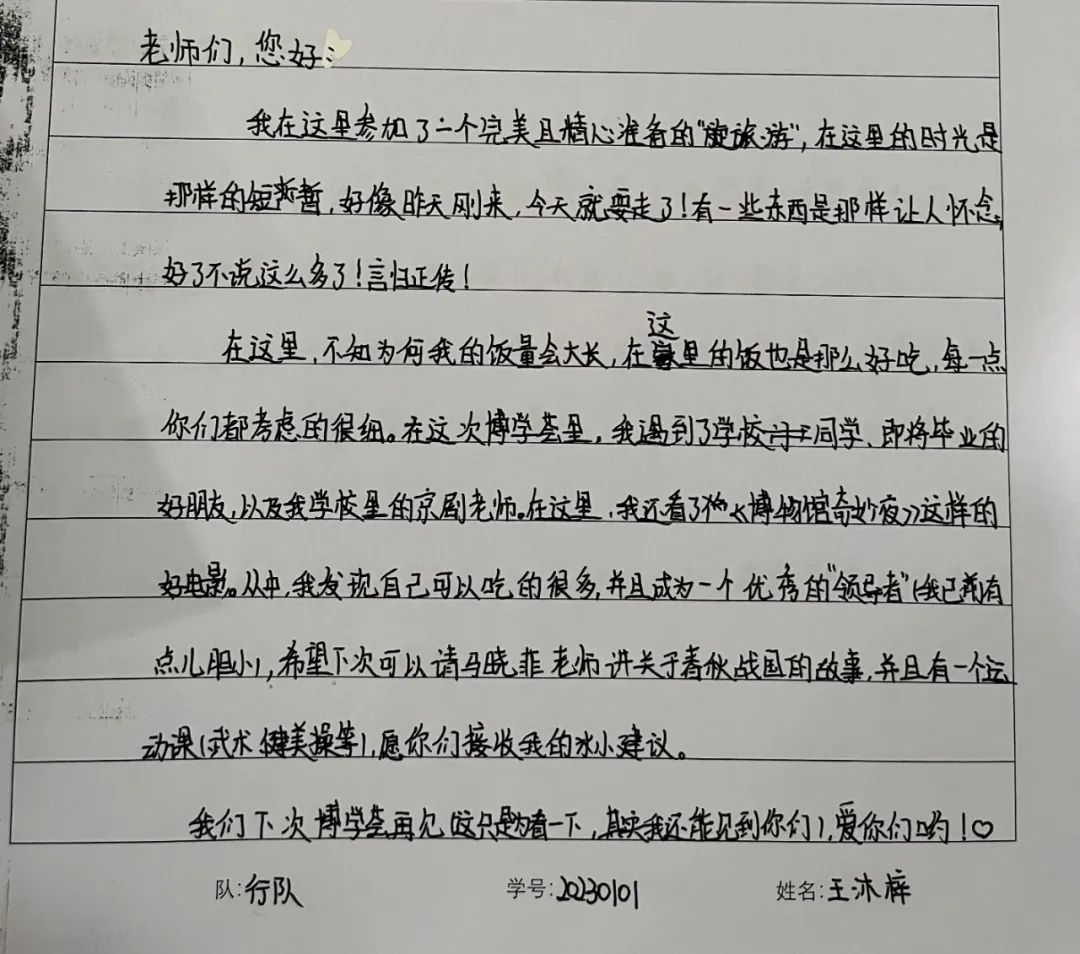 老师们，您好：
我在这里参加了一个完美且精心准备的"旅游"，在这里的时光是
那样的短暂，好像昨天刚来，今天就要走了！有一些东西是那样让人怀念，
好了不说这么多了！言归正传！
在这里，不知为何我的饭量会大长，在这里的饭也是那么好吃，每一点
你们都考虑的很细。在这次博学荟里，我遇到了学校同学、即将毕业的
好朋友，以及我学校里的京剧老师。在这里，我还看了《博物馆奇妙夜》这样的
好电影。从中，我发现自己可以吃的很多，并且成为一个优秀的"领导者"（我已前有
点儿胆小），希望下次可以请马晓菲老师讲关于春秋战国的故事，并且有一个运
动课（武术、健美操等），愿你们接收我的小建议。
我们下次博学荟再见（这只是看一下，其实我还能见到你们），爱你们哟！♡
队：行队 学号：20230101 姓名：王沐梓